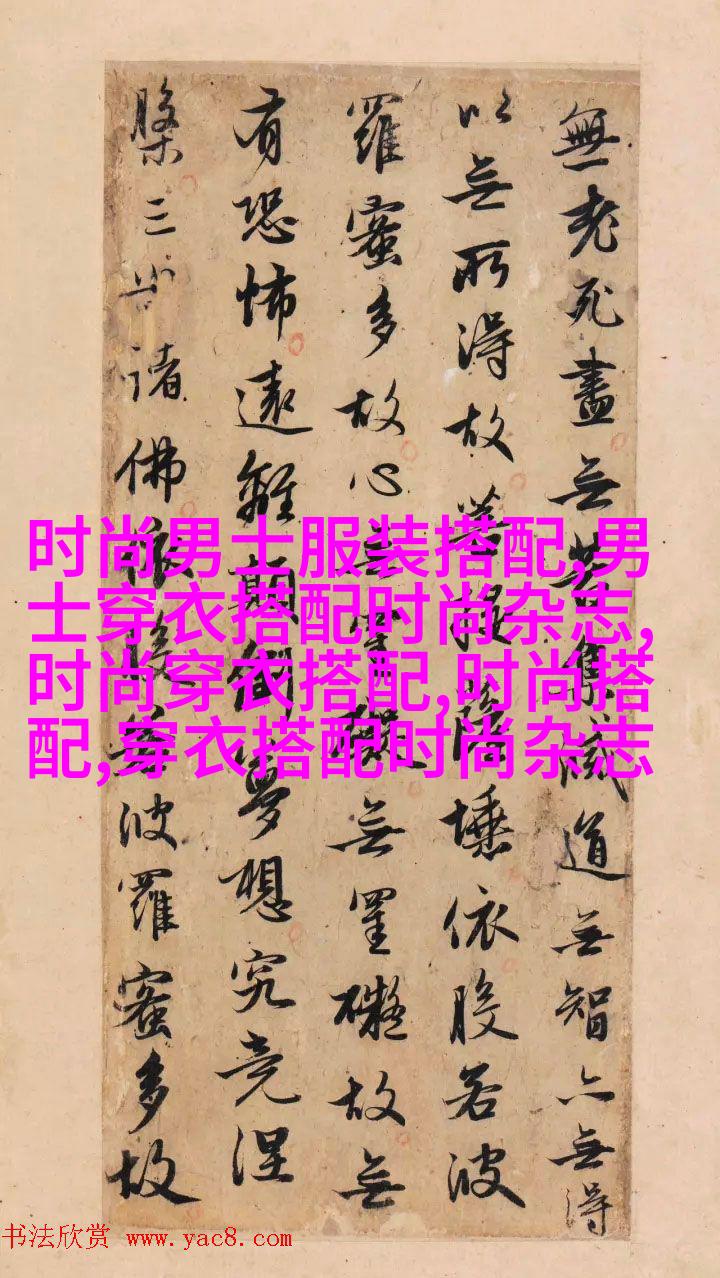 無老死盡無苦集滅道無智亦無得
以無所得故菩提薩埵依般若波
羅蜜多故心無罣礙無罣礙故無
有恐怖遠離顛倒夢想究竟涅
槃三世諸佛依般若波羅蜜多故
时尚男士服装搭配,男
士穿衣搭配时尚杂志,
时尚穿衣搭配,时尚搭
配,穿衣搭配时尚杂志
书法欣赏 www.yac8.com